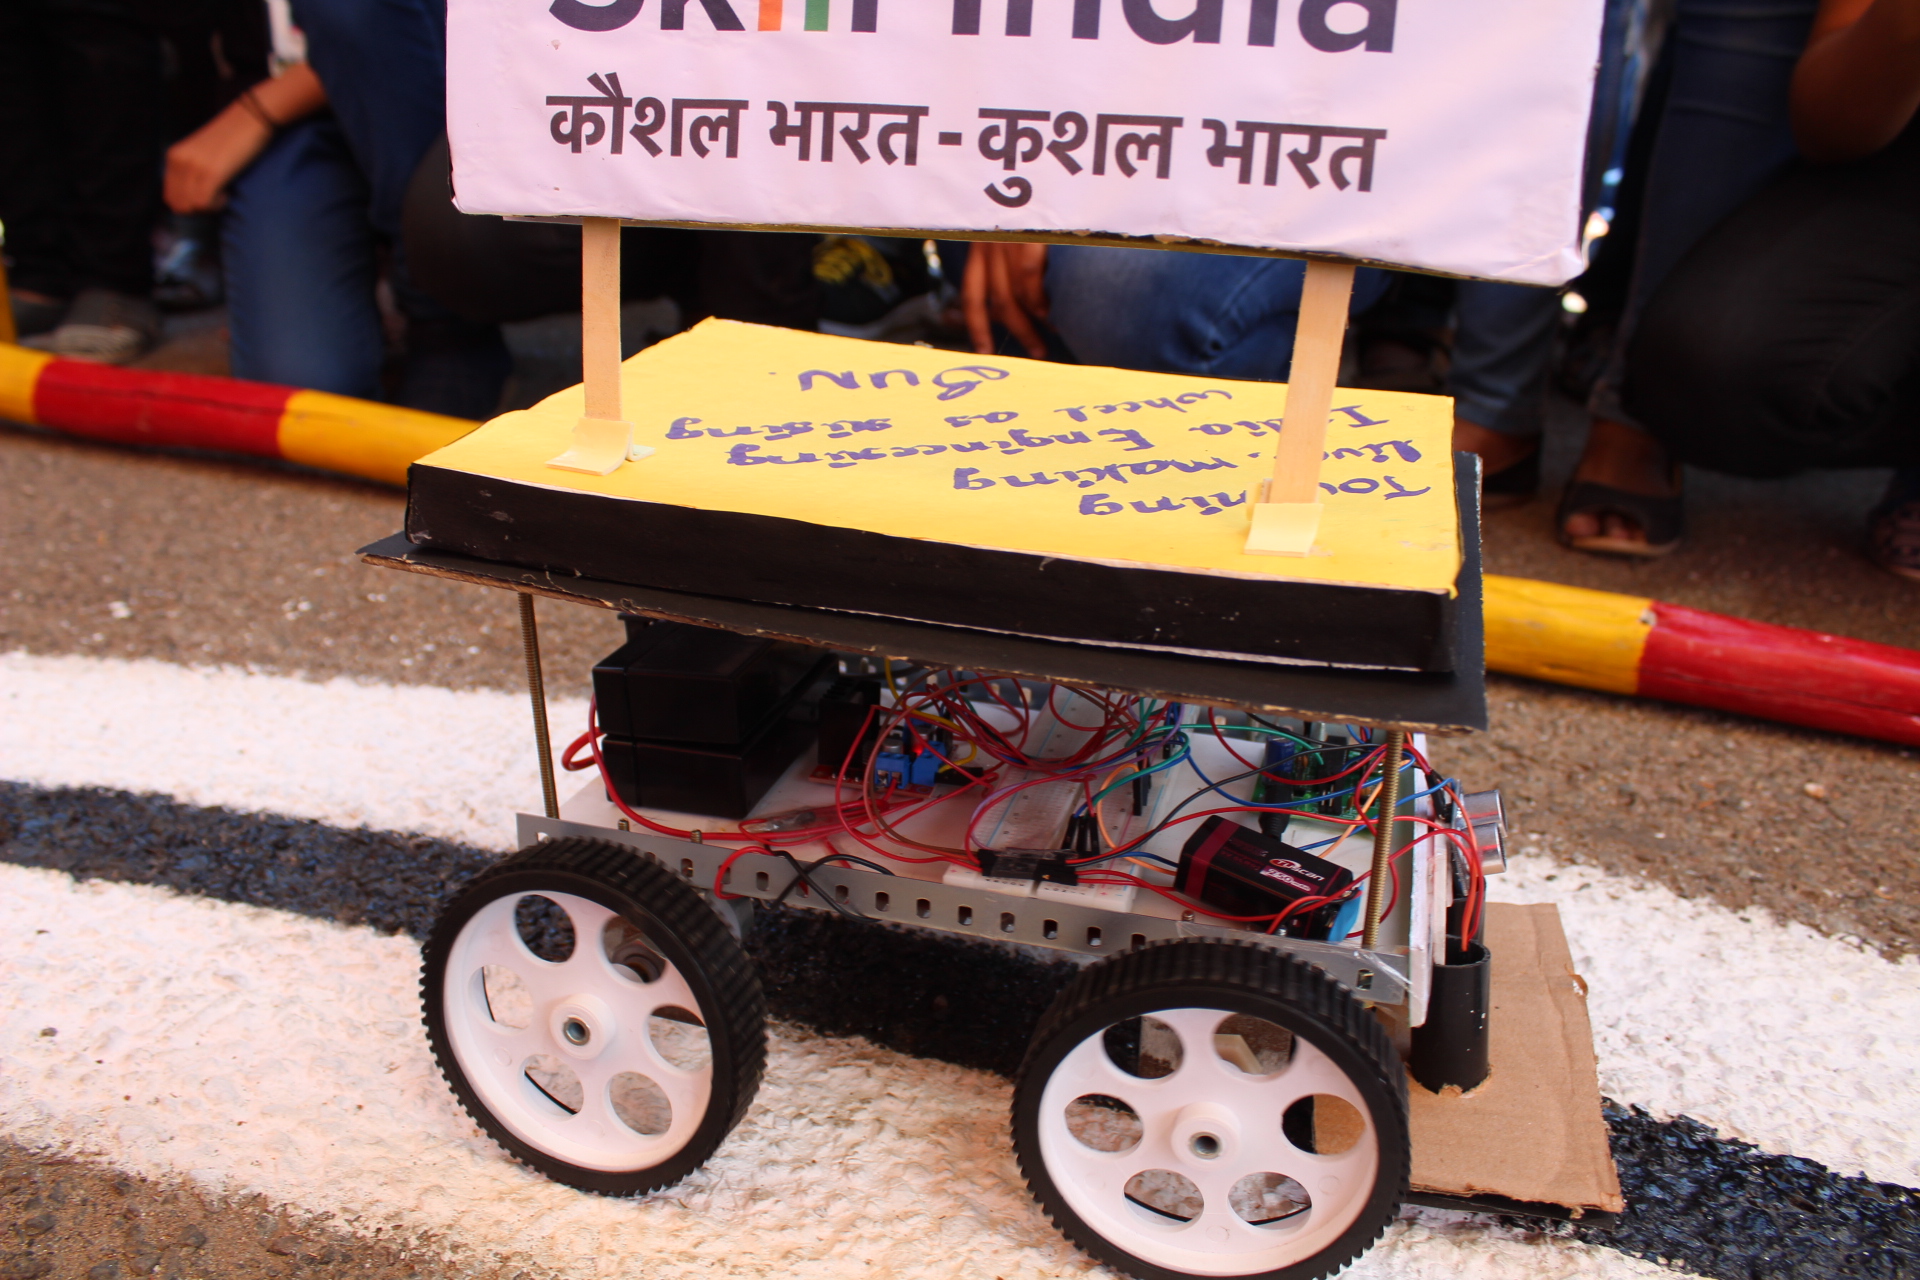 Skill India
कौशल भारत - कुशल भारत
making
India Engineering
wheel as rising
SUN.